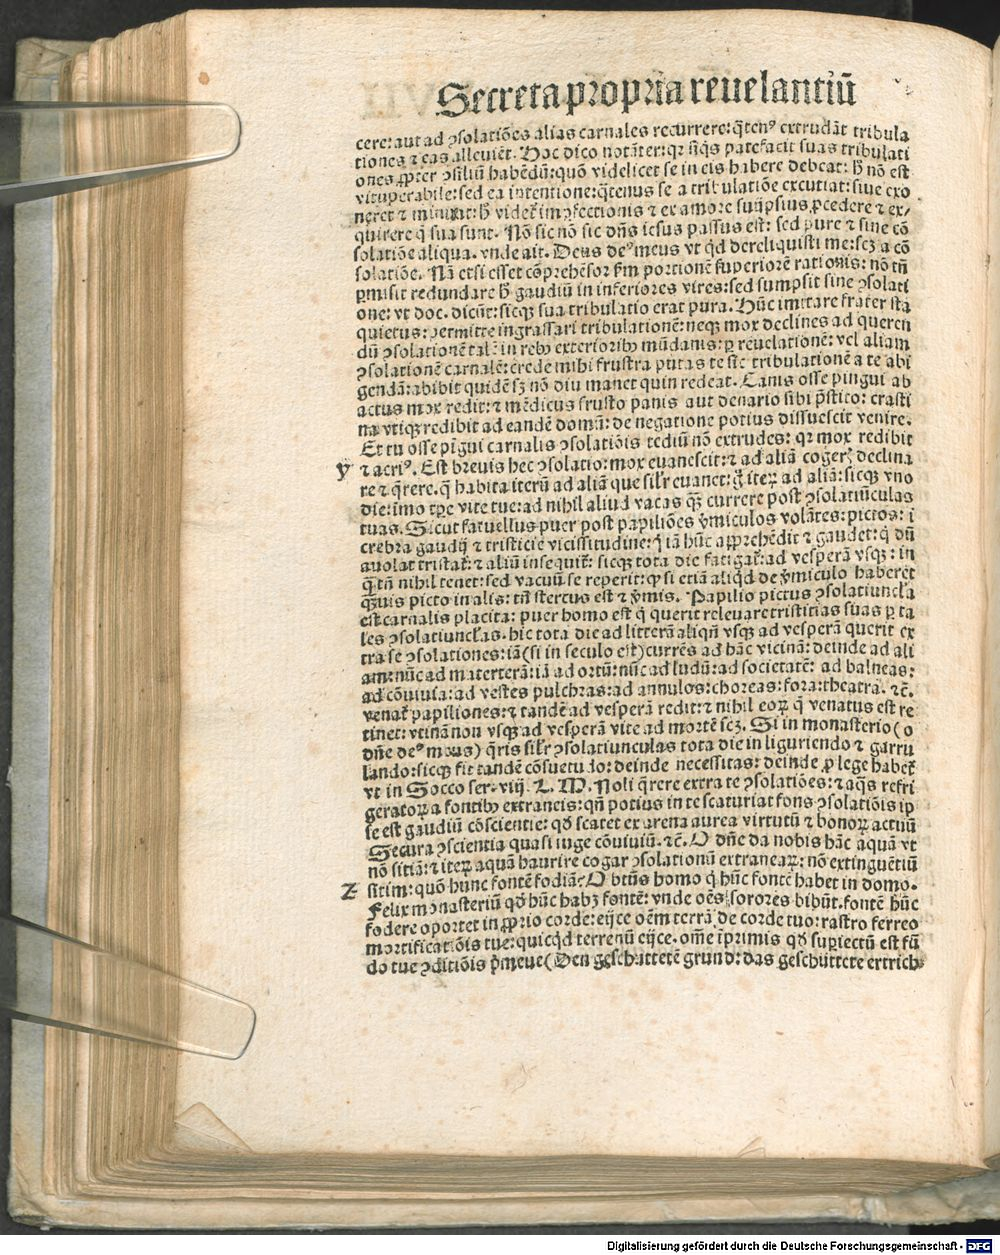 Secreta propria reuelantiũ
cere: aut ad ꝯsolatiões alias carnales recurrere: q̃tenꝰ extrudãt tribula
tiones ⁊ eas alleuiẽt. Hoc dico notãter: qꝛ siq̃s patefacit suas tribulati
ones ꝓpter ꝯsiliũ habẽdũ: quõ videlicet se in eis habere debeat: hꝰ nõ est
vituperabile: sed ea intentione: q̃tenus se a tribulatiõe excutiat: siue exo
neret ⁊ minuat: hꝰ videt̃ imꝑfectionis ⁊ ex amore suijpsius ꝓcedere ⁊ ex/
quirere q̃ sua sunt. Nõ sic nõ sic dñs iesus passus est: sed pure ⁊ sine cõ
solatiõe aliqua. vnde ait. Deus deꝰ meus vt qͥd dereliquisti me: scꝫ a cõ
solatiõe. Nã etsi esset cõprehẽsor ẜm portionẽ superiorẽ rationis: nõ tñ
ꝑmisit redundare hꝰ gaudiũ in inferiores vires: sed sumpsit sine ꝯsolati
one: vt doc. dicũt: sicqꝫ sua tribulatio erat pura. Hũc imitare frater sta
quietus: permitte ingrassari tribulationẽ: neqꝫ mox declines ad queren
dũ ꝯsolationẽ talẽ in rebꝰ exterioribꝰ mũdanis: ꝑ reuelationẽ: vel aliam
ꝯsolationẽ carnalẽ: crede mihi frustra putas te sic tribulationẽ a te abi
gendã: abibit quidẽ sꝫ nõ diu manet quin redeat. Canis osse pingui ab
actus mox redit: ⁊ mẽdicus frusto panis aut denario sibi p̃stito: crasti
na vtiqꝫ redibit ad eandẽ domũ: de negatione potius dissuescit venire.
Et tu osse pĩgui carnalis ꝯsolatiõis tediũ nõ extrudes: qꝛ mox redibit
y ⁊ acriꝰ. Est breuis hec ꝯsolatio: mox euanescit: ⁊ ad aliã cogeꝝ declina
re ⁊ q̃rere. q̃ habita iterũ ad aliã que silr̃ euanet: g̃ iteꝝ ad aliã: sicqꝫ vno
die: imo tꝑe vite tue: ad nihil aliud vacas qͣꝫ currere post ꝯsolatiũculas
tuas. Sicut fatuellus puer post papiliões v̾miculos volãtes: pictos: i
crebra gaudij ⁊ tristicie vicissitudine: q̃ iã hũc apprehẽdit ⁊ gaudet: q̃ dũ
auolat tristat̃: ⁊ aliũ insequit̃: sicqꝫ tota die fatigat̃: ad vesperã vsqꝫ: in
q̃ tñ nihil tenet: sed vacuũ se reperit: ꝙ si etiã aliqͥd de v̾miculo haberet
qͣꝫuis picto in alis: tñ stercus est ⁊ v̾mis. Papilio pictus ꝯsolatiuncl̃a
est carnalis placita: puer homo est q̃ querit releuare tristitias suas ꝑ ta
les ꝯsolatiuncl̃as. hic tota die ad litterã aliqñ vsqꝫ ad vesperã querit ex
tra se ꝯsolationes: iã (si in seculo est) currẽs ad hãc vicinã: deinde ad ali
am: nũc ad materterã: iã ad ortũ: nũc ad ludũ: ad societatẽ: ad balneas:
ad cõuiuia: ad vestes pulchras: ad annulos: choreas: fora: theatra. ⁊c̃.
venat̃ papiliones: ⁊ tandẽ ad vesperã redit: ⁊ nihil eoꝝ q̃ venatus est re
tinet: vtinã non vsqꝫ ad vesperã vite ad mortẽ scꝫ. Si in monasterio (o
dñe deꝰ meus) q̃ris silr̃ ꝯsolatiunculas tota die in liguriendo ⁊ garru
lando: sicqꝫ fit tandẽ cõsuetudo: deinde necessitas: deinde ꝓ lege habet̃
vt in Socco ser. viij. L. M. Noli q̃rere extra te ꝯsolatiões: ⁊ aq̃s refri
geratoꝝ a fontibꝰ extraneis: qñ potius in te scaturiat fons ꝯsolatiõis ip
se est gaudiũ cõscientie: qð scatet ex arena aurea virtutũ ⁊ bonoꝝ actuũ
Secura ꝯscientia quasi iuge cõuiuiũ. ⁊c̃. O dñe da nobis hãc aquã vt
nõ sitiã: ⁊ iteꝝ aquã haurire cogar ꝯsolationũ extraneaꝝ: nõ extinguẽtiũ
Z sitim: quõ hunc fontẽ fodiã? O btũs homo q̃ hũc fontẽ habet in domo.
Felix monasteriũ qð hũc habꝫ fontẽ: vnde oẽs sorores bibũt. fontẽ hũc
fodere oportet in ꝓprio corde: eijce oẽm terrã de corde tuo: rastro ferreo
mortificatiõis tue: quicqͥd terrenũ eijce. om̃e ĩprimis qð supiectũ est fũ
do tue ꝯditiõis p̃meue (Den geschuttetẽ grund: das geschuttete ertrich
Digitalisierung gefördert durch die Deutsche Forschungsgemeinschaft - DFG